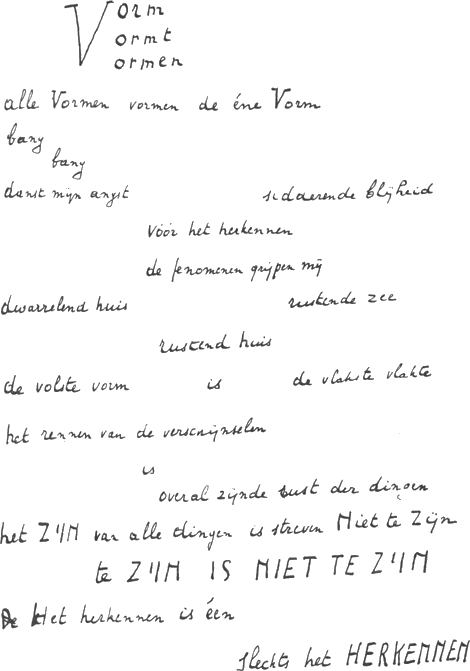 Vorm
ormt
ormen
alle Vormen vormen de éne Vorm
bang
bang
danst mijn angst sidderende blijheid
vóór het herkennen
de fenomenen grijpen mij
dwarrelend huis rustende zee
rustend huis
de volste vorm is de vlakste vlakte
het rennen van de verschijnselen
is
overal zijnde rust der dingen
het ZIJN van alle dingen is streven Niet te Zijn
te ZIJN IS NIET TE ZIJN
De Het herkennen is één
slechts het HERKENNEN